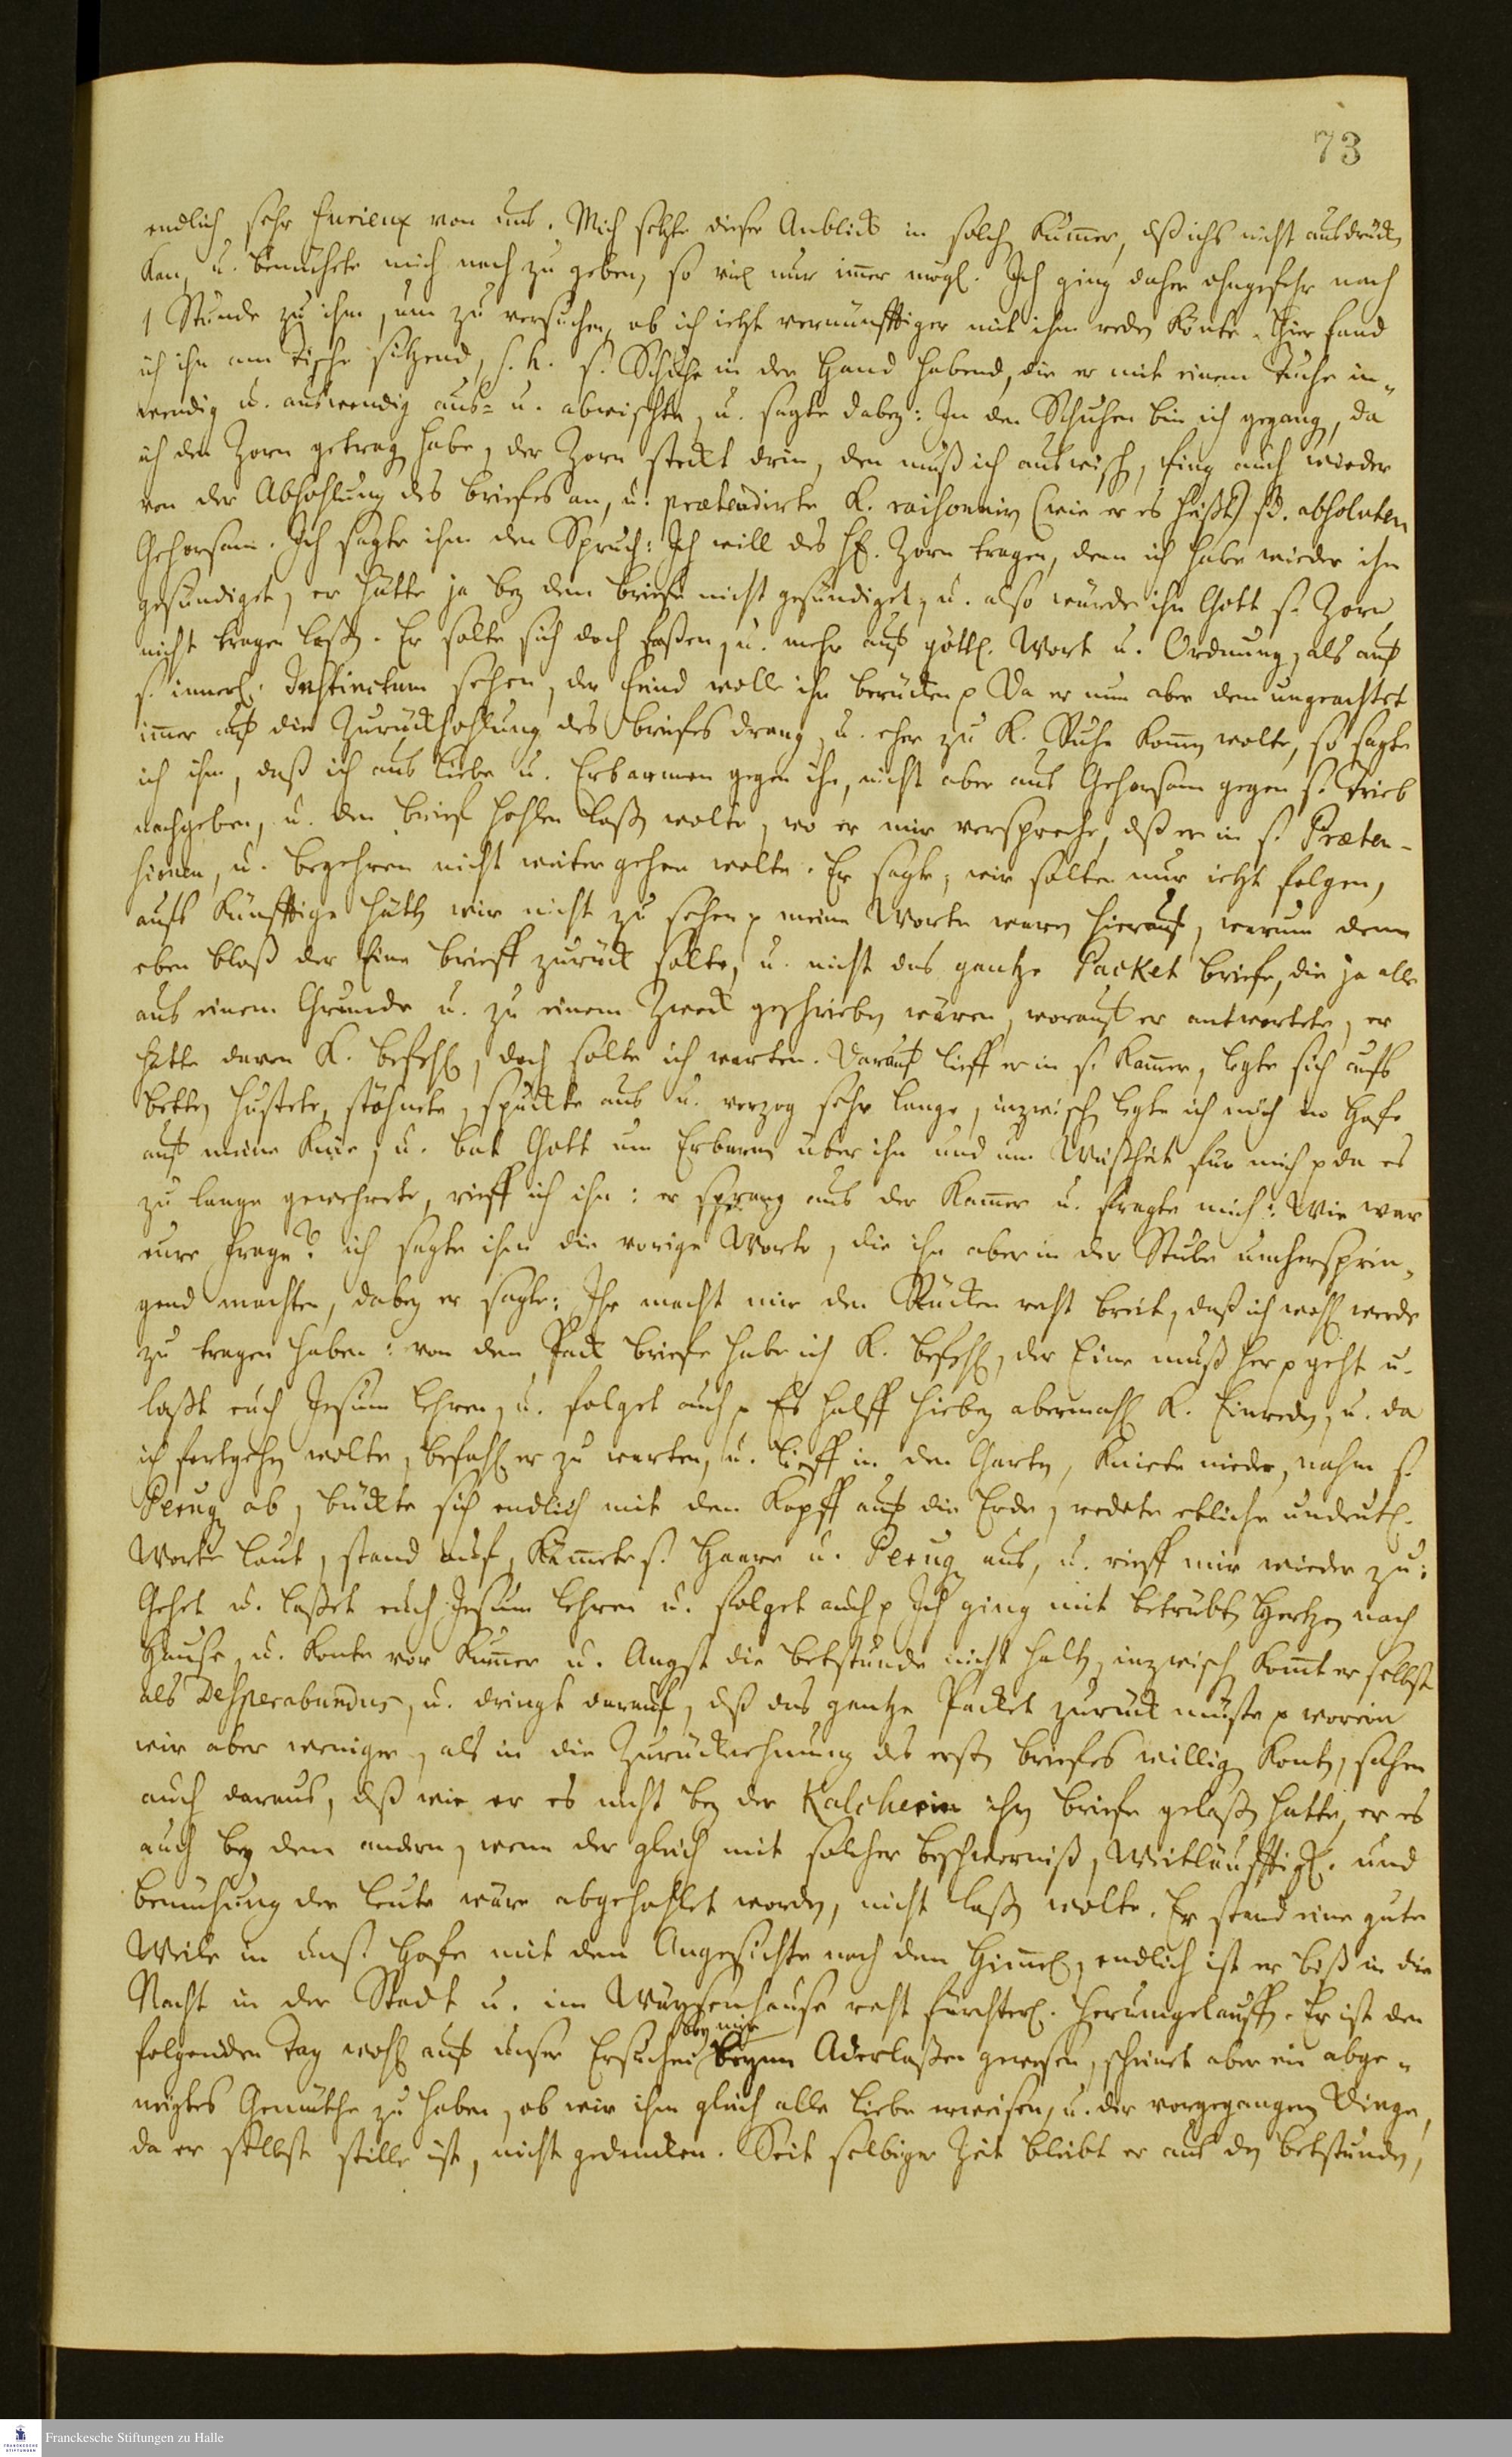 73
endlich sehr furieux von uns. Mich setzte dieser Anblick in solch Kummer, dß ichs nicht ausdrück
kan, u. bemuhete mich nach zu geben, so viel nur immer mögl. Ich ging daher ohngefehr nach
1 Stunde zu ihm, um zu versuchen, ob ich ietzt vernünfftiger mit ihm reden könte. Hier fand
ich ihn am Tische sitzend, s. h. s. Schuhe in der Hand habend, die er mit einem Tuche in-
wendig u. auswendig aus- u. abwischte, u. sagte dabey: In den Schuhen bin ich gegang, da
ich den Zorn getrag habe, der Zorn steckt drin, den muß ich auswisch, fing auch wieder
von der Abhohlung des briefes an, u. praetendirte K. raisonnir (wie er es heißt) sd. absoluten
Gehorsam. Ich sagte ihm den Spruch: Ich will des HE. Zorn tragen, denn ich habe wieder ihn
gesündiget, er hätte ja bey dem briefe nicht gesündiget, u. also würde ihn Gott s. Zorn
nicht tragen laß. Er solte sich doch faßen, u. mehr auf göttl. Wort u. Ordnung, als auf
s. innerl. Instinctum sehen, der feind wolle ihn berücken p Da er nun aber dem ungeachtet
immer auf die Zurückhohlung des briefes drang, u. eher zu K. Ruhe komm wolte, so sagte
ich ihm, daß ich aus liebe u. Erbarmen gegen ihn, nicht aber aus Gehorsam gegen s. Trieb
nachgeben, u. den brief hohlen laß wolte, wo er mir verspreche, dß er in s. Praeten-
sionen, u. begehren nicht weiter gehen wolte. Er sagte, wir solten nur ietzt folgen,
aufs künfftige hätt wir nicht zu sehen p meine Worte waren hierauf, warum denn
eben bloß der Eine brieff zurück solte, u. nicht das gantze Packet briefe, die ja alle
aus einem Grunde u. zu einem Zweck geschrieben wären, worauf er antwortete, er
hätte davon K. befehl, doch solte ich warten. Darauf lieff er in s. Kammer, legte sich aufs
bette, hustete, stöhnete, spuckte aus u. verzog sehr lange, inzwisch legte ich mich im Hofe
auf meine Knie, u. bat Gott um Erbarm über ihn und um Weißheit fur mich p da es
zu lange gewehrete, rieff ich ihn: er sprang aus der Kammer u. fragte mich: Wie war
eure frage? ich sagte ihm die vorige Worte, die ihn aber in der Stube umherssprin-
gend machten, dabey er sagte: Ihr macht mir den Rücken recht breit, daß ich wohl werde
zu tragen haben: von dem Pack briefe habe ich K. befehl, der Eine muß her p geht u.
laßt euch Jesum lehren, u. folget auch p Es halff hiebey abermahl K. Einreden, u. da
ich fortgehen wolte, befahl er zu warten, u. lieff in den Garten, kniete nieder, nahm s.
Peruq ab, bückte sich endlich mit dem Kopff auf die Erde, redete etliche undeutl.
Worte laut, stand auf, kämmete s. Haare u. Peruq aus, u. rieff mir wieder zu:
Gehet u. laßet euch Jesum lehren u. folget auch p Ich ging mit betrübt Hertzen nach
Hause, u. konte vor Kummer u. Angst die betstunde nicht halt, inzwisch komt er selbst
als Desperabundus, u. dringt darauf, dß das gantze Packet zurück müste p worein
wir aber weniger, als in die Zurücknehmung des erst briefes willig kont, sahen
auch daraus, dß wie er es nicht bey der Kalcherin ihren briefe gelaß hatte, er es
auch bey dem andern, wenn der gleich mit solcher beschwerniß, Weitläufftigk. und
bemuhung der leute wäre abgehohlet worden, nicht laß wolte. Er stand eine gute
Weile in uns. Hofe mit dem Angesichte nach dem Himmel, endlich ist er biß in die
Nacht in der Stadt u. im Waysenhause recht fürchterl. herumgelauff. Er ist den
bey mir
folgenden Tag wohl auf unser Ersuchen beym Aderlaßen gewesen, scheinet aber ein abge-
neigtes Gemüthe zu haben, ob wir ihm gleich alle liebe erweisen, u. der vorgegangen Dinge,
da er selbst stille ist, nicht gedencken. Seit selbiger Zeit bleibt er aus den betstunden,
Franckesche Stiftungen zu Halle